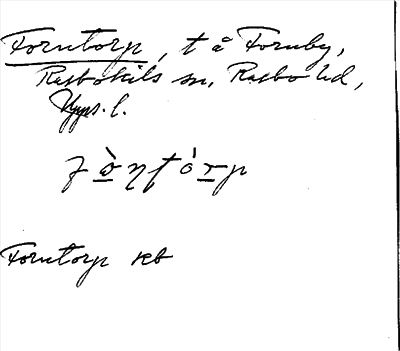 Forntorp, t å Fornby,
Rasbokils sn, Rasbo hd,
Upps. l.
fɷ̀ŋtórp
Forntorp kb